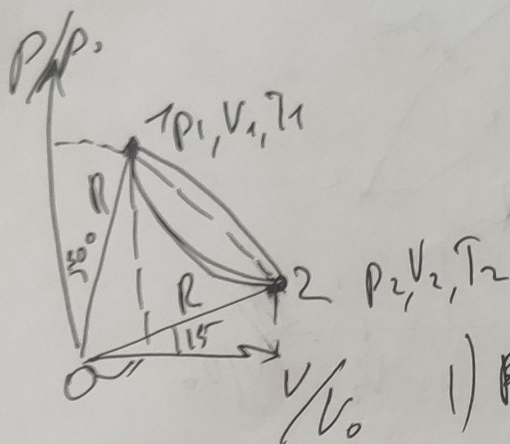 P/P₀
1 p₁, V₁, T₁
R
30°
R
2 p₂, V₂, T₂
15
O
V/V₀
1)